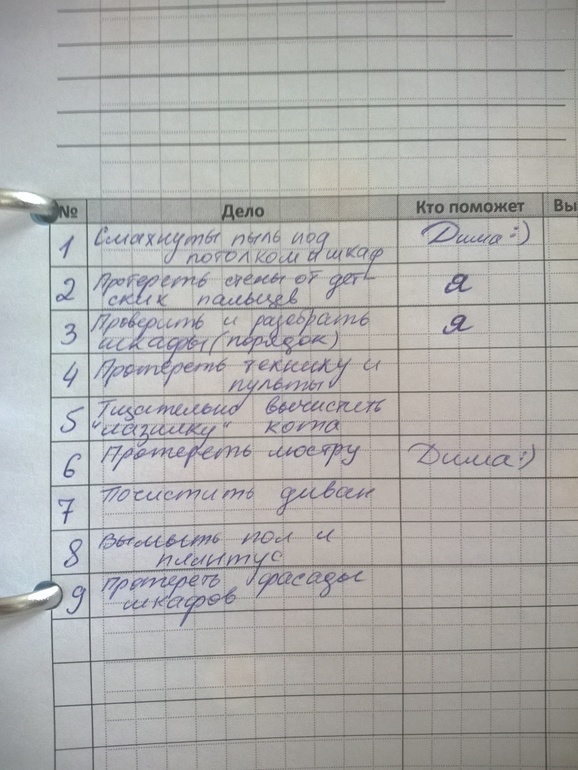 № Дело Кто поможет Вы
1 Смахнуты пыль под Дима:)
потолком и шкаф
2 Протереть стены от дет- я
ских пальцев
3 Проверить и разобрать я
шкафы (порядок)
4 Протереть технику и
пульты
5 Тщательно вычистить
"лазилку" кота
6 Протереть люстру Дима:)
7 Почистить диван
8 Вымыть пол и
плинтус
9 Протереть фасады
шкафов